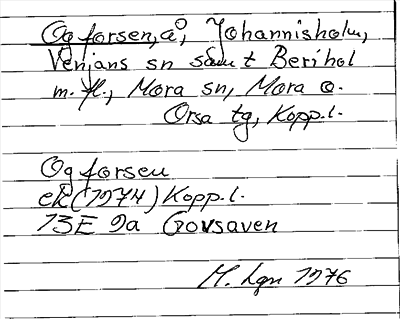 Ogforsen, å, Johannisholm,
Venjans sn samt Berihol
m. fl., Mora sn, Mora o.
Orsa tg, Kopp.l.
Ogforsen
ek (1974) Kopp.l.
13E 9a Govsaven
M. Lgn 1976